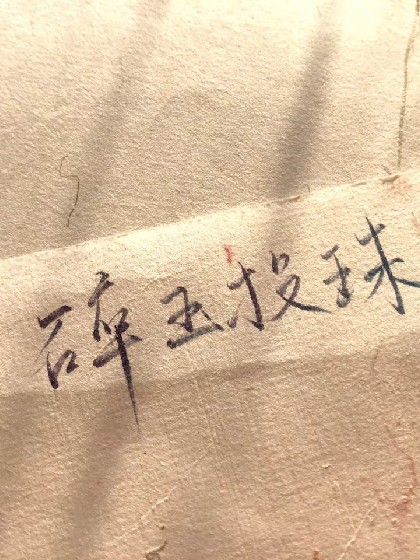 碎玉投珠